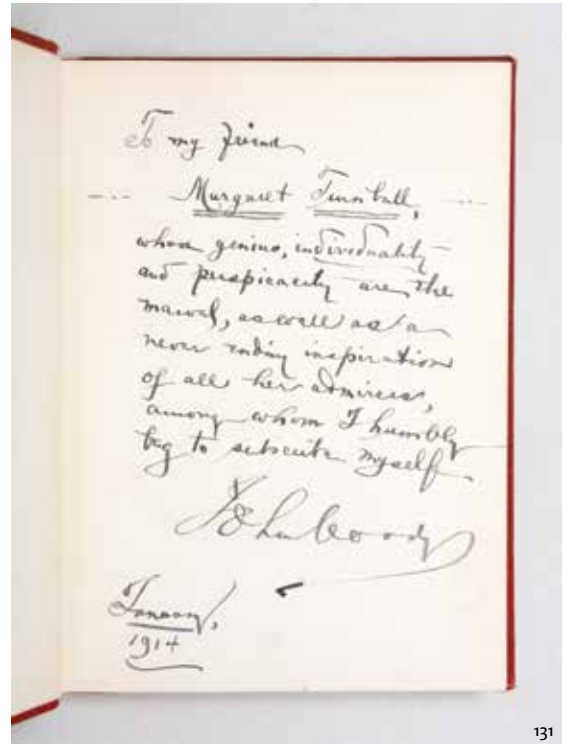 To my friend
Margaret Turnbull,
whose genius, individuality
and perspicacity are the
marvel, as well as a
never ending inspiration
of all her admirers,
among whom I humbly
beg to subscribe myself
January,
1914
131